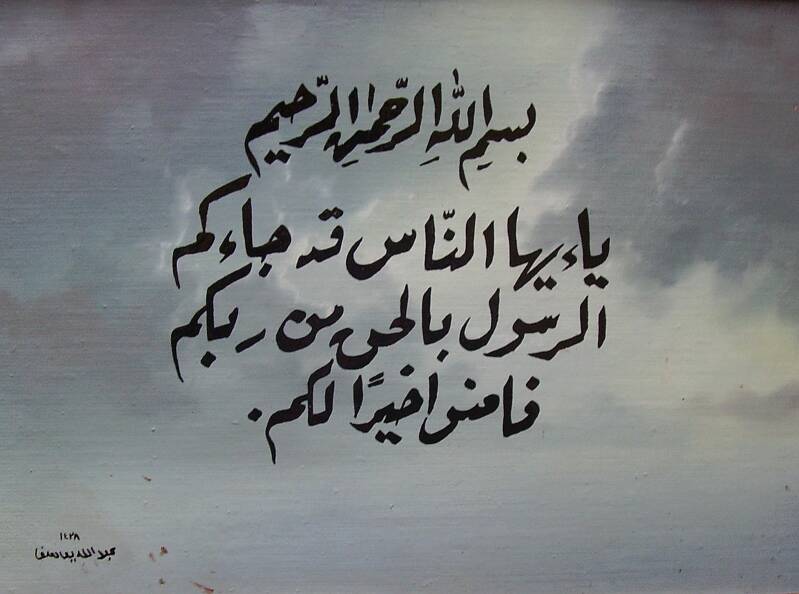 بسمِ اللهِ الرّحمنِ الرّحيم
ياءيها النّاس قد جاءكم
الرسول بالحق من ربكم
فامنوا خيرًا لكم.
١٤٢٨
عبد الله